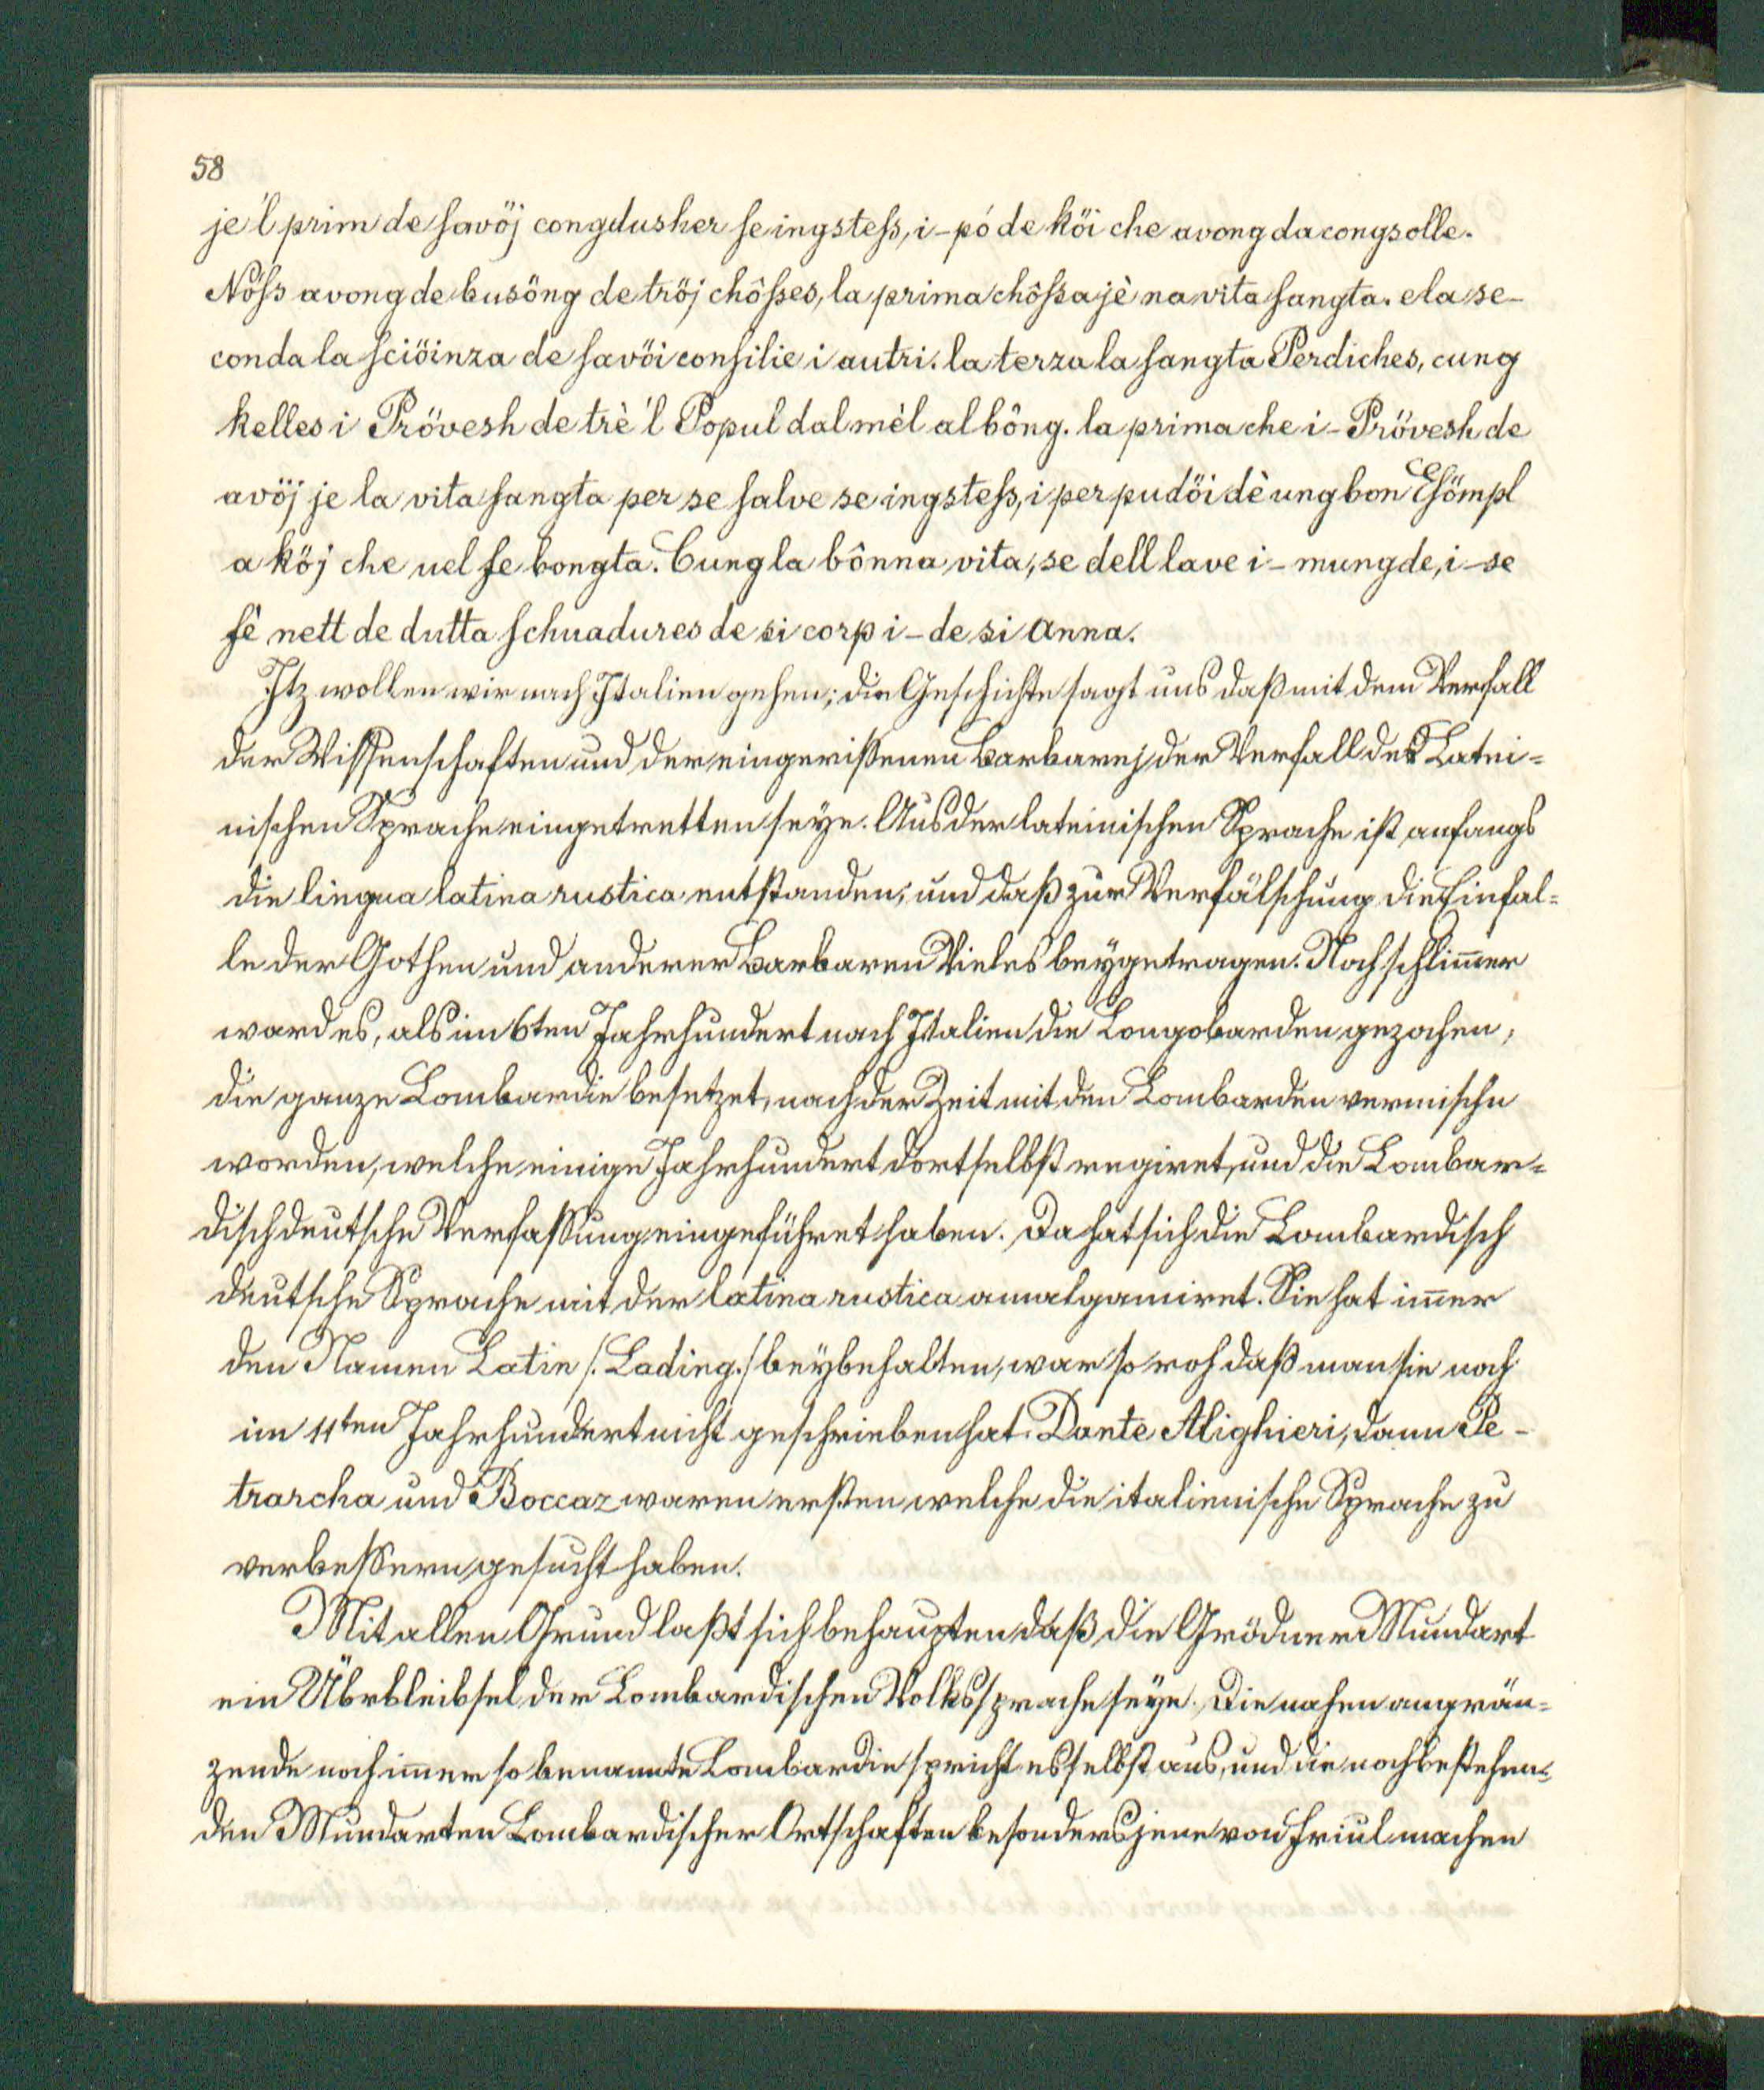 58
je'l prim de savöj congdusher se ingstess, i-pó de köi che avong da congsolle.
Nöss avong de busöng de tröj chôsses, la prima chôssa jè na vita sangta. e la se-
conda la sciöinza de savöi consilie i autri. la terza la sangta Perdiches, cung
kelles i Prövesh de trè 'l Popul dal mèl al bông. la prima che i-Prövesh de
avöj je la vita sangta per se salve se ingstess, i per pudöi dè ung bon Esömpl
a köj che uel fe bongta. Cung la bônna vita, se dell lave i-mungde, i-se
fè nett de dutta schuadures de si corp i-de si Anna.
Jtz wollen wir nach Jtalien gehen; die Geschichte sagt uns daß mit dem Verfall
der Wissenschaften und der eingerissenen Barbarej der Verfall der Latei=
nischen Sprache eingetretten seye. Aus der lateinischen Sprache ist anfangs
die lingua latina rustica entstanden, und daß zur Verfälschung die Einfäl=
le der Gothen und anderer Barbaren Vieles beygetragen. Noch schlim̄er
ward es, als im 6ten Jahrhundert nach Jtalien die Longobarden gezochen,
die ganze Lombardie besetzet, nach der Zeit mit den Lombarden vermischn
worden, welche einige Jahrhundert dortselbst regiret, und die Lombar=
disch deutsche Verfassung eingeführet haben. Da hat sich die Lombardisch
deutsche Sprache mit der latina rustica amalgamiret. Sie hat im̄er
den Namen Latin /: Lading :/ beybehalten, war so roh daß man sie noch
im 11ten Jahrhundert nicht geschrieben hat. Dante Alighieri, dann Pe-
trarcha und Boccaz waren ersten welche die italienische Sprache zu
verbessern gesucht haben.
Mit allen Grund laßt sich behaupten daß die Grödner Mundart
ein Übrbleibsel der Lombardischen Volkssprache seye. Die nahen angrän=
zende noch im̄er so benannte Lombardie spricht es selbst aus, und die noch bestehen=
den Mundarten Lombardischer Ortschaften besonders jene von Friul machen